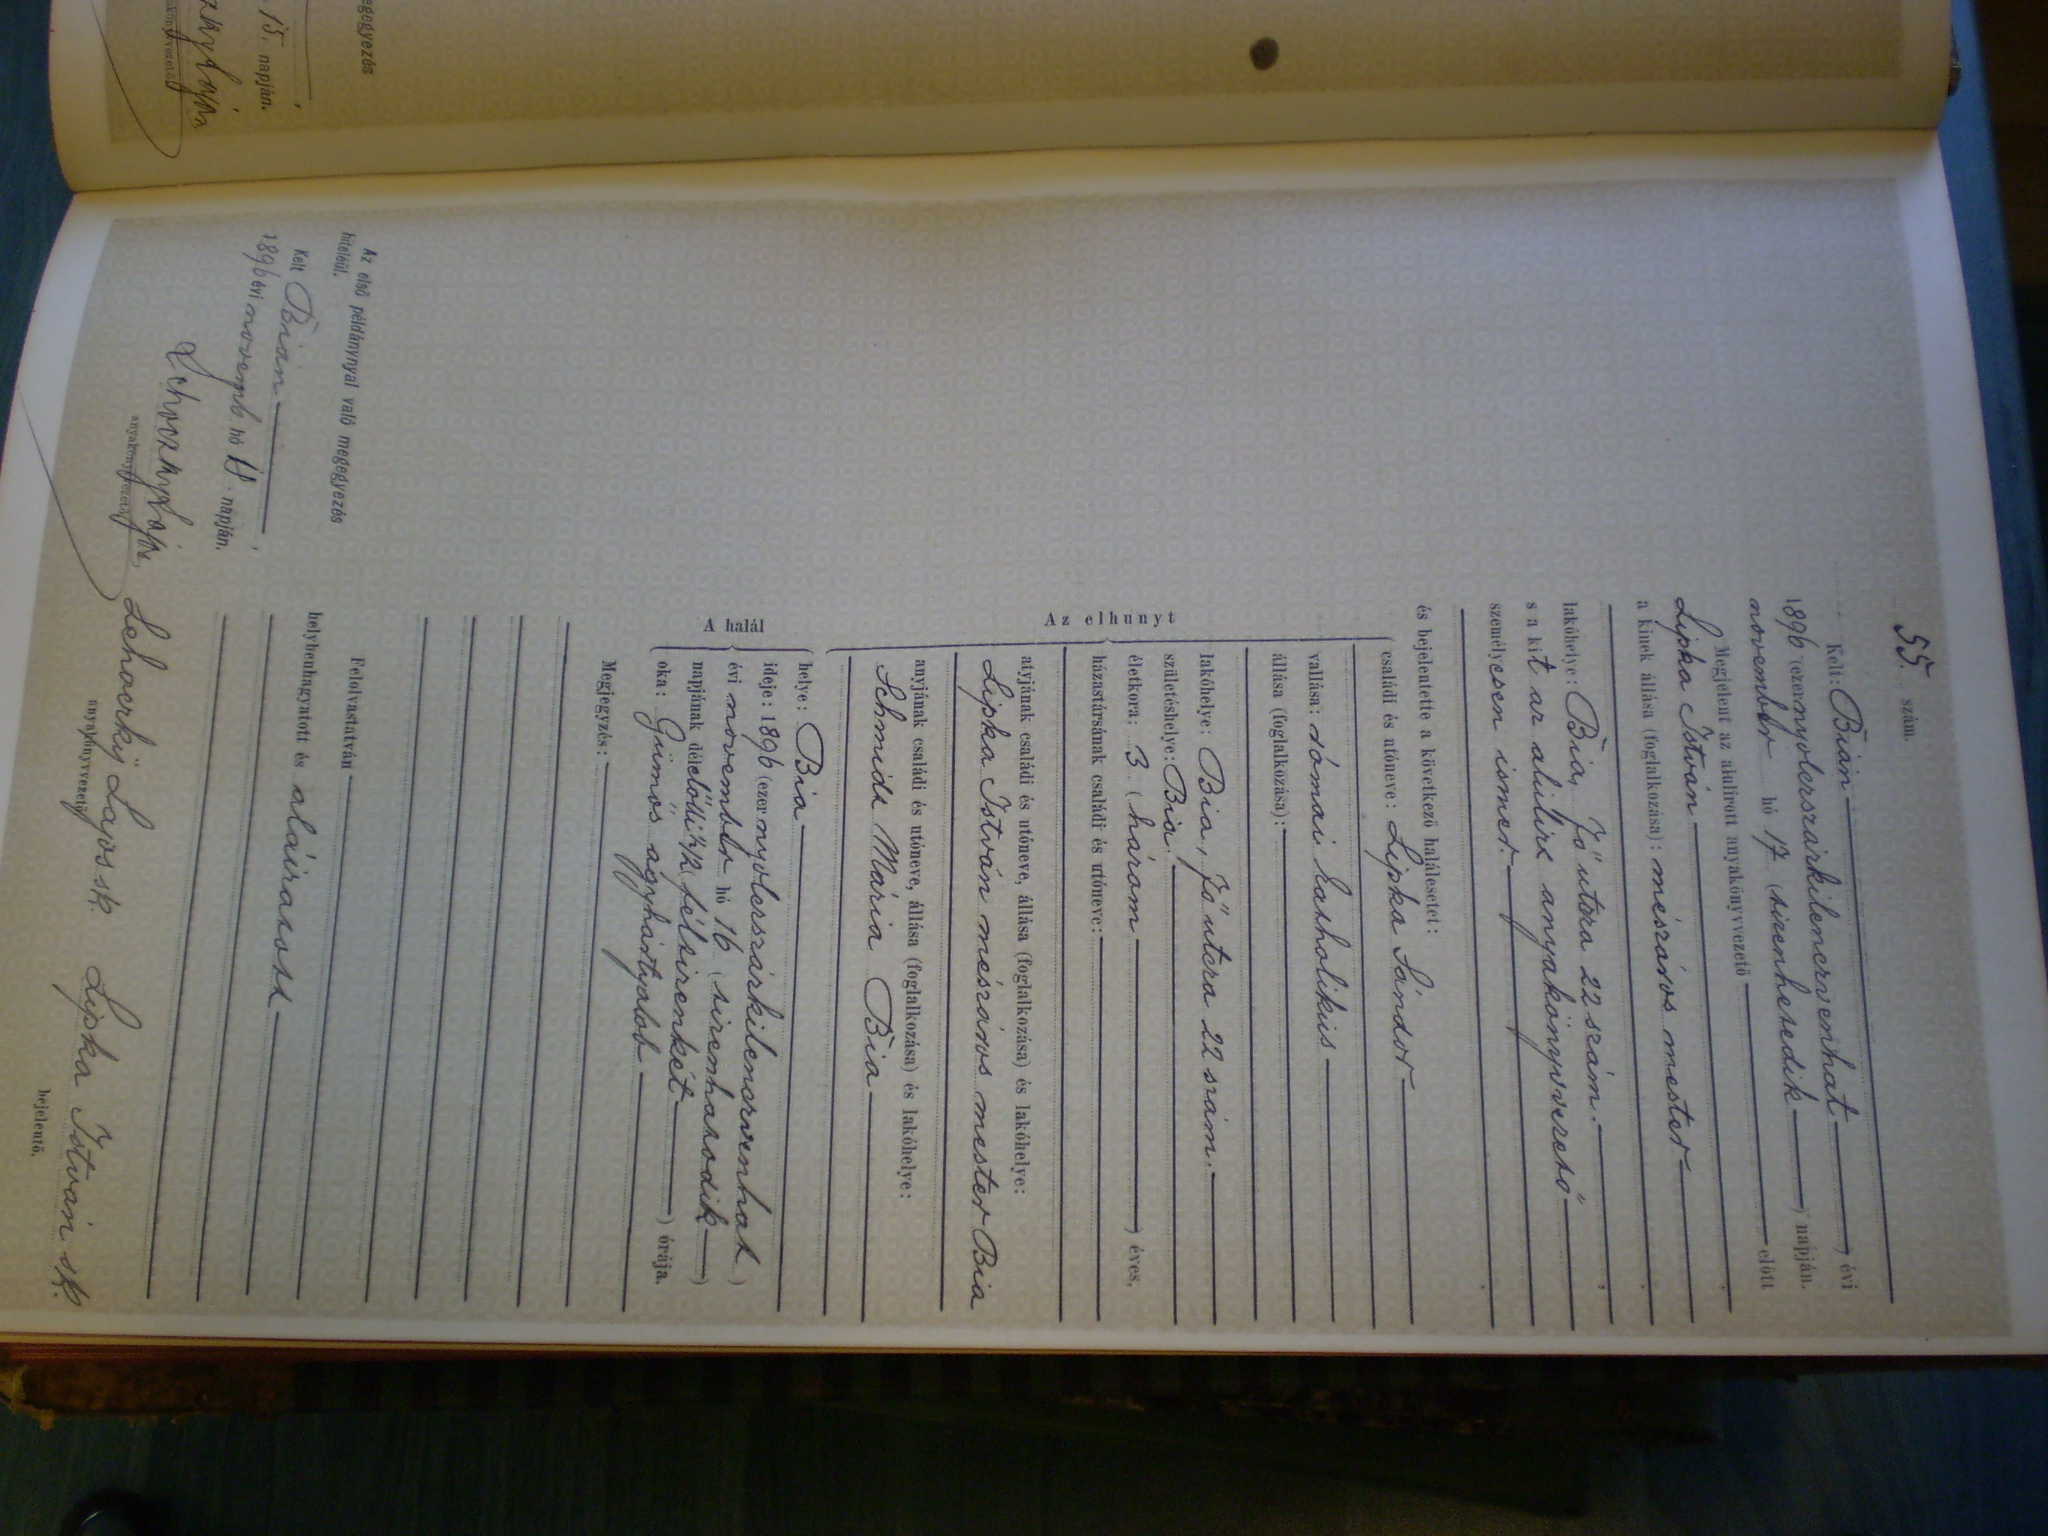 55. szám.
Kelt: Bián ) évi
1896 (ezernyolczszázkilenczvenhat
november hó 17 (tizenhetedik ) napján.
Megjelent az alulirott anyakönyvvezető előtt
Lipka István
a kinek állása (foglalkozása): mészáros mester
lakóhelye: Bia, Fő utcza 22 szám.
s a kit az alulirt anyakönyvvezető
személyesen ismer.
és bejelentette a következő halálesetet:
Az elhunyt
családi és utóneve: Lipka Sándor
vallása: római katholikus
állása (foglalkozása):
lakóhelye: Bia, Fő utcza 22 szám.
születéshelye: Bia.
életkora: 3 (három ) éves,
házastársának családi és utóneve:
atyjának családi és utóneve, állása (foglalkozása) és lakóhelye:
Lipka István mészáros mester Bia
anyjának családi és utóneve, állása (foglalkozása) és lakóhelye:
Schmidt Mária Bia
A halál
helye: Bia
ideje: 1896 (ezernyolczszázkilenczvenhat )
évi november hó 16 (tizenhatodik )
napjának délelőtti ½12 (féltizenkét ) órája.
oka: Gümős agyhártyalob
Megjegyzés:
Felolvastatván
helybenhagyatott és aláiratott
Lehoczky Lajos sk. Lipka István sk.
anyakönyvvezető bejelentő.
Az első példánynyal való megegyezés
hiteléül.
Kelt Bián,
1896 évi novemb. hó 17. napján.
anyakönyvvezető
egegyezés
15. napján.